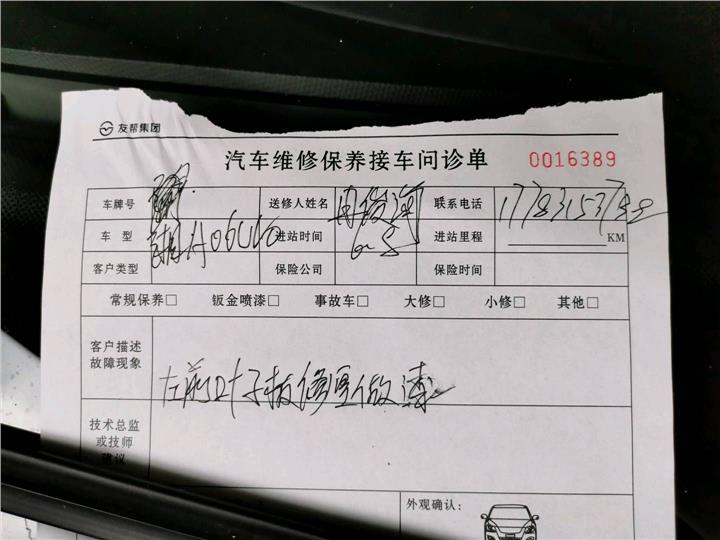 友帮集团
汽车维修保养接车问诊单 0016389
车牌号 送修人姓名 联系电话
车 型 进站时间 进站里程 KM
客户类型 保险公司 保险时间
常规保养□ 钣金喷漆□ 事故车□ 大修□ 小修□ 其他□
客户描述
故障现象
左前叶子板修复做漆
技术总监
或技师
建议
外观确认：